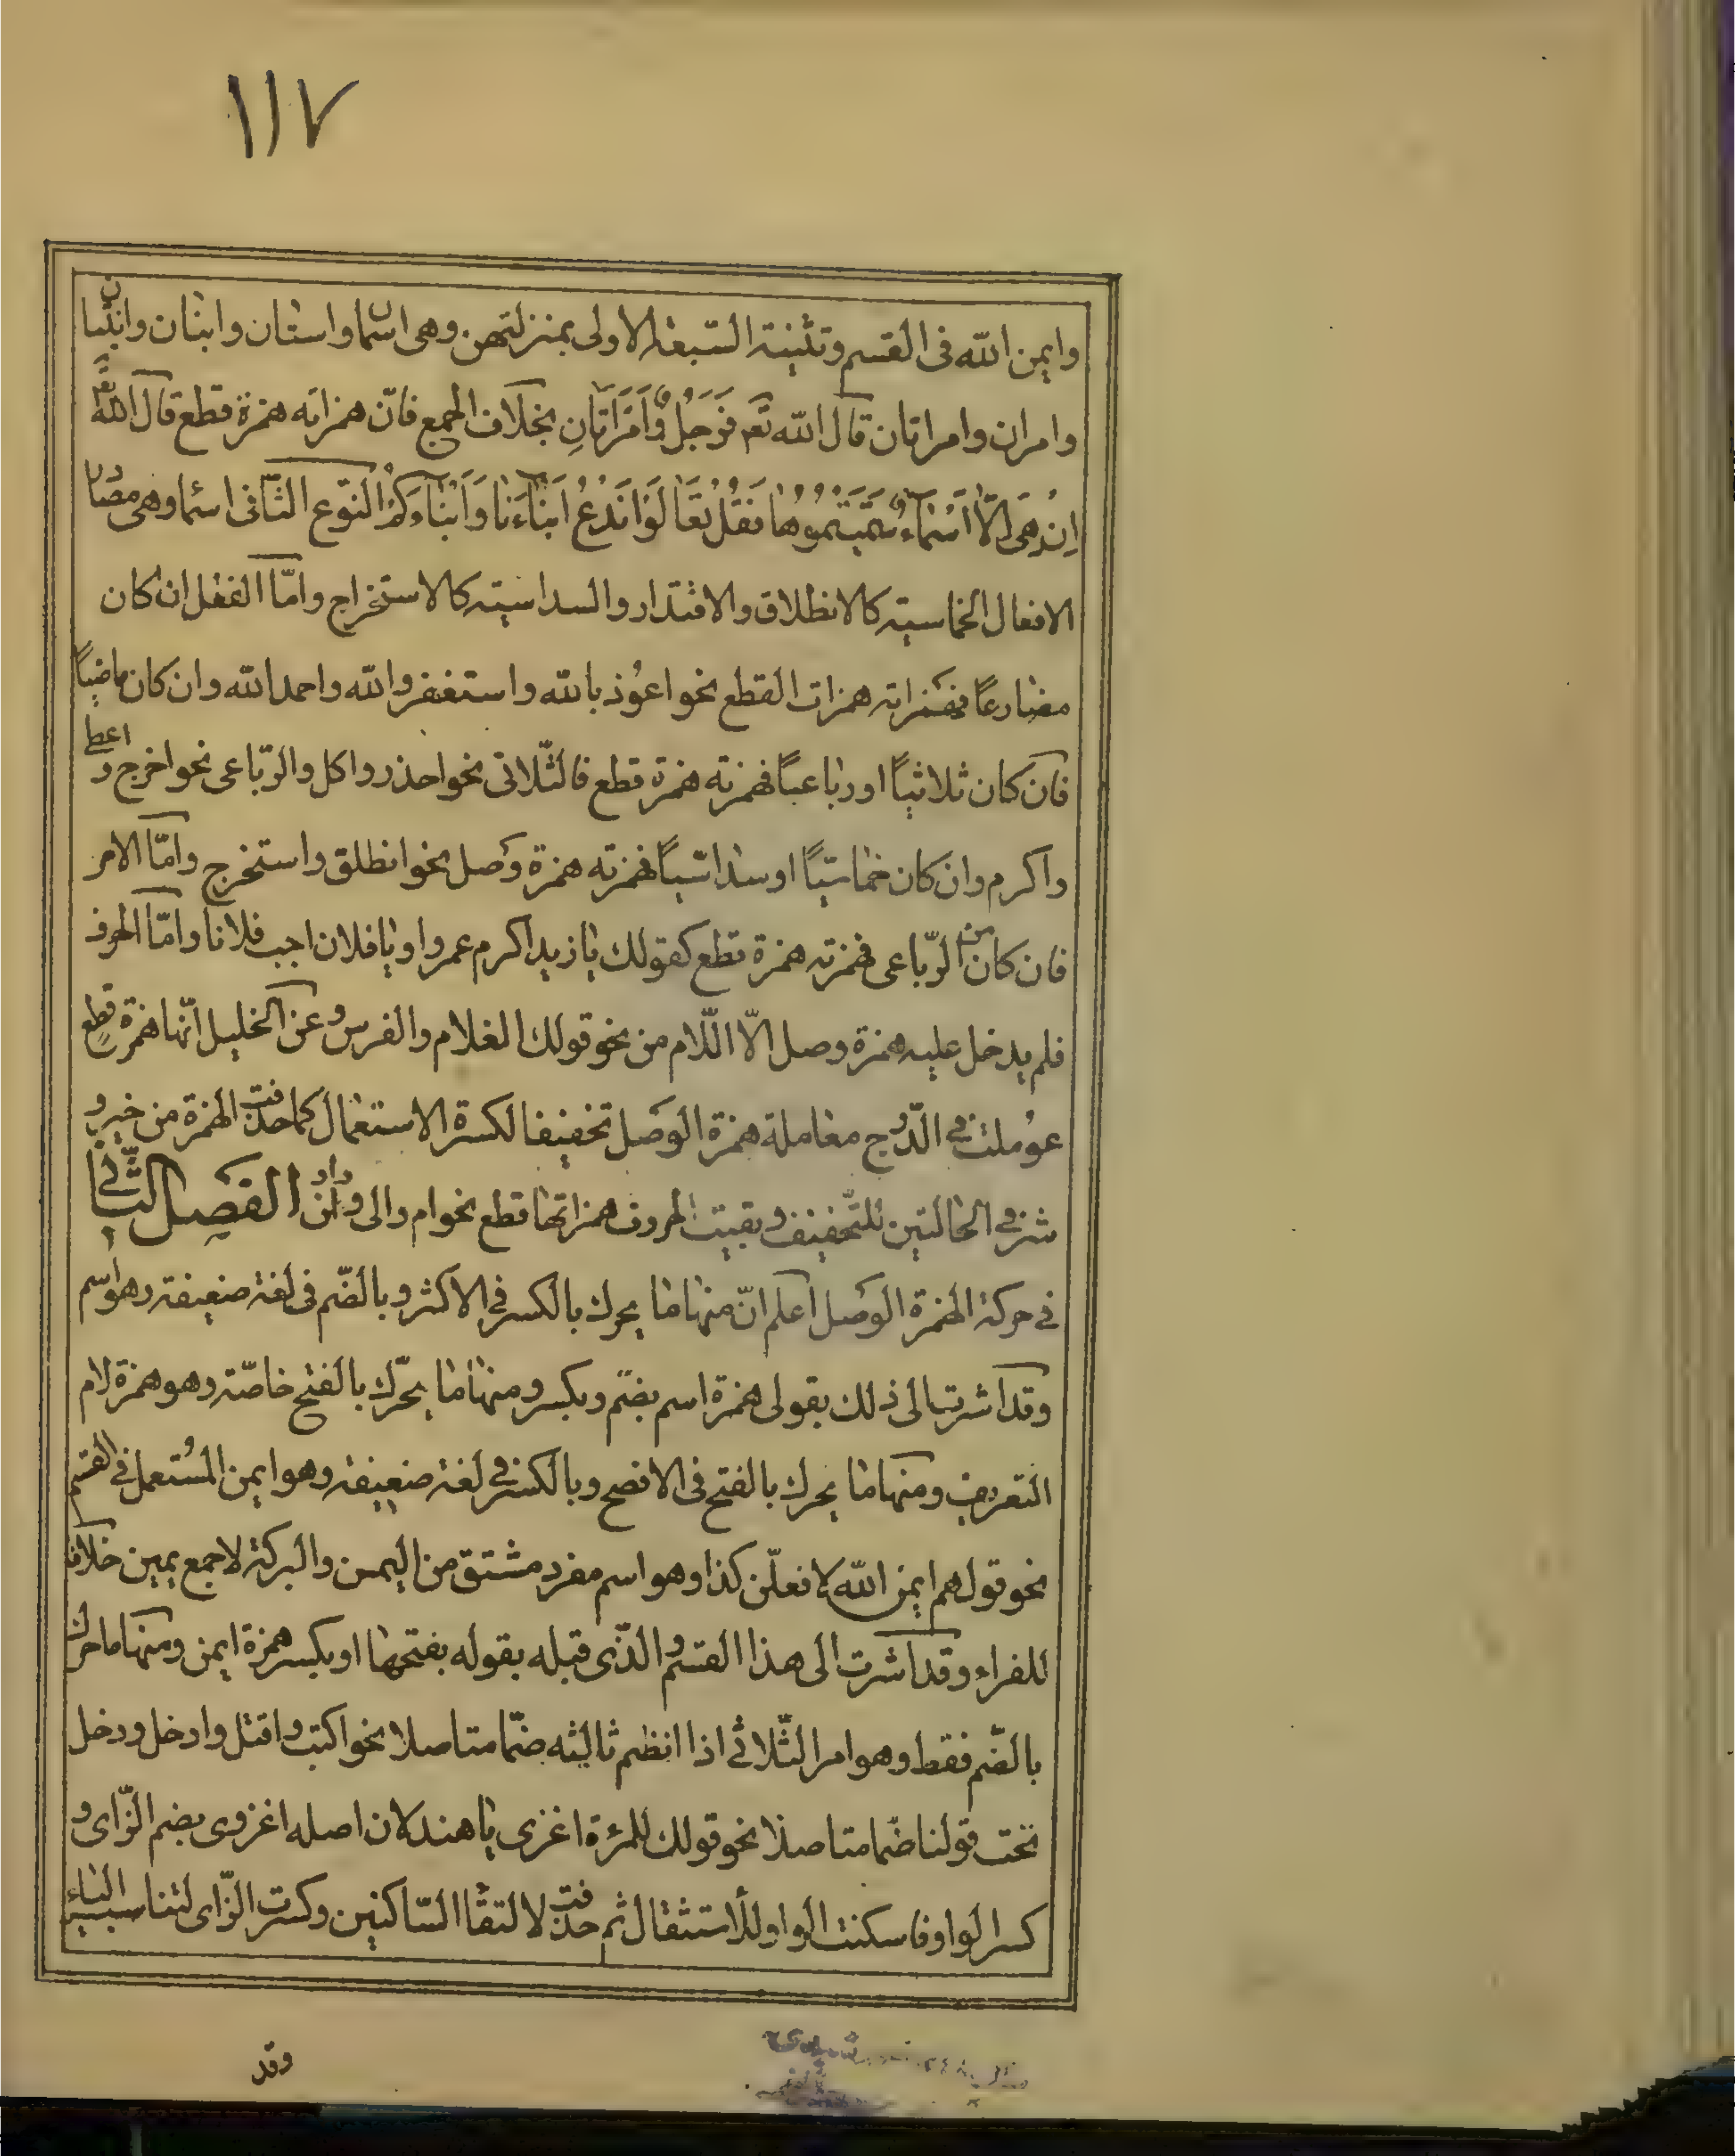 ١١٧
وايمن الله فى القسم وتثنية السّبعة الاولى بمنزلتهن. وهى اسمان واستان وابنان وابنتان
وامران وامراتان قال الله تع فَرَجُلٌ وَّامْرَاَتَانِ بخلاف الجمع فانّ همزاته همزة قطع قال الله تع
اِنْ هِىَ اِلَّا اَسْمَآءٌ سَمَّيْتُمُوهَا فَقُلْ تَعَالَوْا نَدْعُ اَبْنَآءَنَا وَاَبْنَآءَكُمْ النّوع الثّانى اسما وهى مصادر
الافعال الخماسيّة كالانطلاق والاقتدار والسداسيّة كالاستخراج وامّا الفعل ان كان
مضارعاً فهمزاته همزات القطع نحو اعوُذ بالله واستغفر والله واحمد الله وان كان ماضياً
فان كان ثلاثيّاً او رباعيّاً فهمزته همزة قطع فالثّلاثى نحو احذر واكل والرّباعى نحو اخرج و اعطى
واكرم وان كان خماسيّاً او سداسيّاً فهمزته همزة وصل نحو انطلق واستخرج وامّا الامر
فان كان من الرّباعى فهمزته همزة قطع كقولك يا زيد اكرم عمروا ويا فلان اجب فلانا وامّا الحرف
فلم يدخل عليه همزة وصل الّا اللّام من نحو قولك الغلام والفرس وعن الخليل انّها همزة قطع
عوُملت فى الدّرج معاملة همزة الوصل تخفيفا لكسرة الاستعمال كما حذفت الهمزة من خير و
شر فى الحالتين للتّخفيف وبقيت الحروف همزاتها قطع نحو ام والى وان واو الفصل الثّانى
فى حركة الهمزة الوصل اعلم انّ منها ما يحرك بالكسر فى الاكثر وبالضّم فى لغة ضعيفة وهو اسم
وقد اشرت الى ذلك بقولى همزة اسم بضم وبكسر ومنها ما يحرّك بالفتح خاصّة وهو همزة لام
التعريف ومنها ما يحرك بالفتح فى الافصح وبالكسر فى لغة ضعيفة وهو ايمن المُستعمل فى القسم
نحو قولهم ايمن الله لافعلّن كذا وهو اسم مفرد مشتق من اليمن والبركة لا جمع يمين خلافا
للفراء وقد اشرت الى هذا القسم والّذى قبله بقوله بفتحها او بكسر همزة ايمن ومنها ما حرك
بالضّم فقط وهو امر الثّلاثى اذا انظم ثالثه ضمّا متاصلا نحو اكتب واقتل وادخل ودخل
تحت قولنا ضما متاصلا نحو قولك للمرءة اغزى يا هند لان اصله اغزوى بضم الزّاى و
كسر الواو فاسكنت الواو للأستثقال ثم حذفت لالتقا السّاكنين وكسرت الزّاى لتناسب الياء
وقد